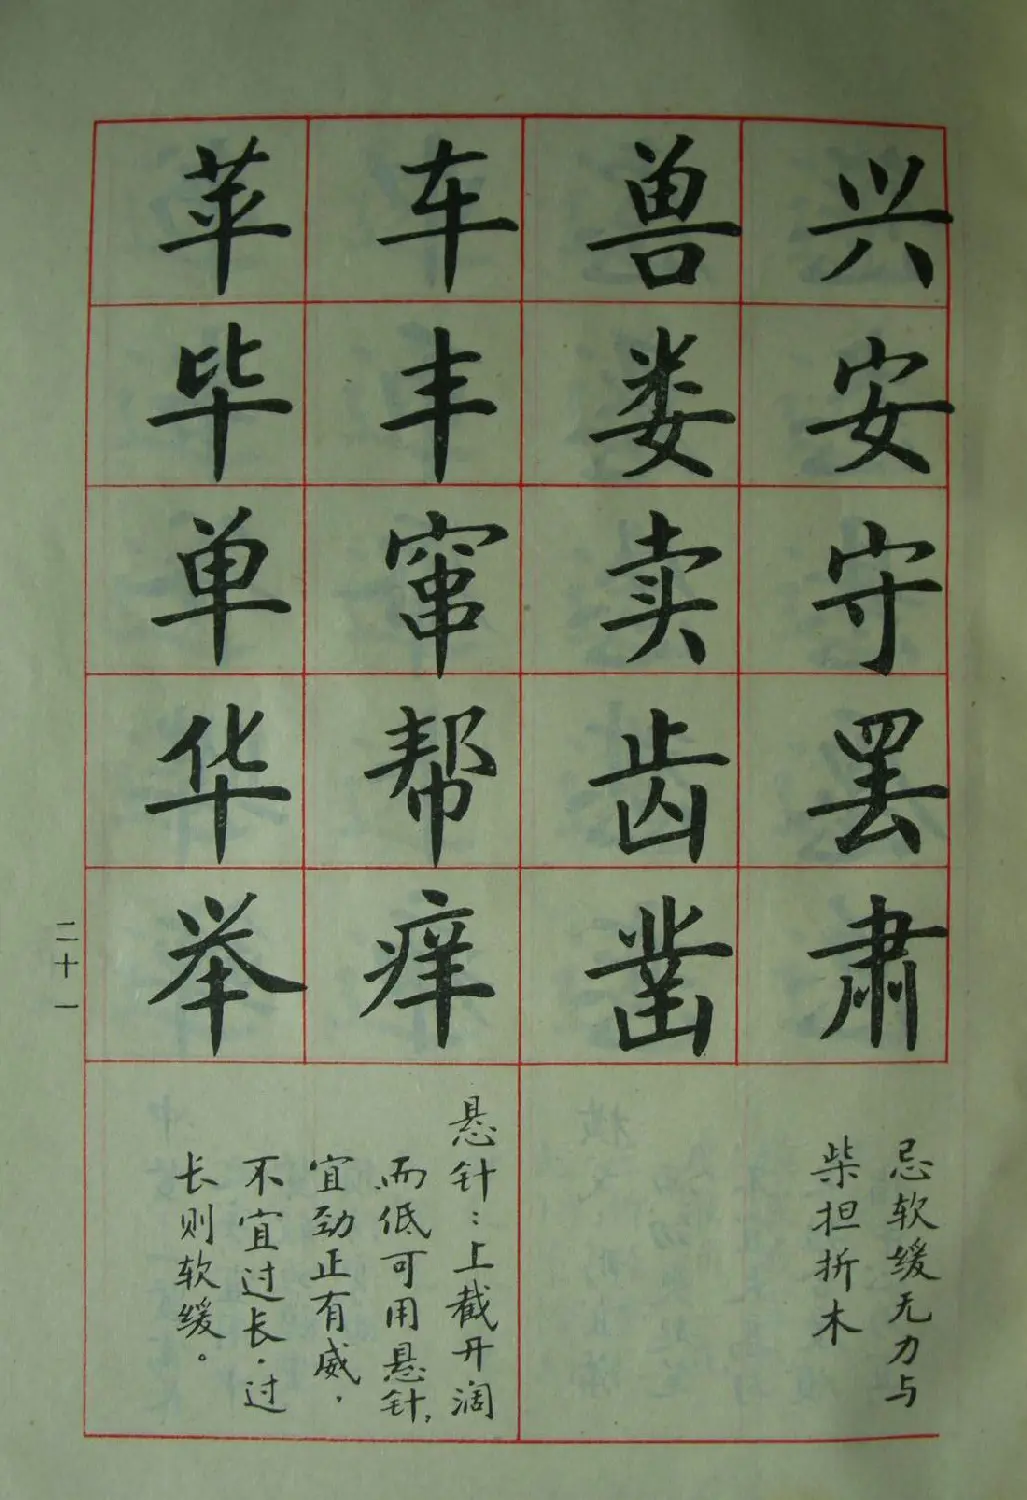 兴安守罢肃
兽娄卖齿凿
车丰窜帮痒
苹毕单华举
忌软缓无力与
柴担折木
悬针：上截开阔
而低可用悬针，
宜劲正有威．
不宜过长．过
长则软缓。
二十一